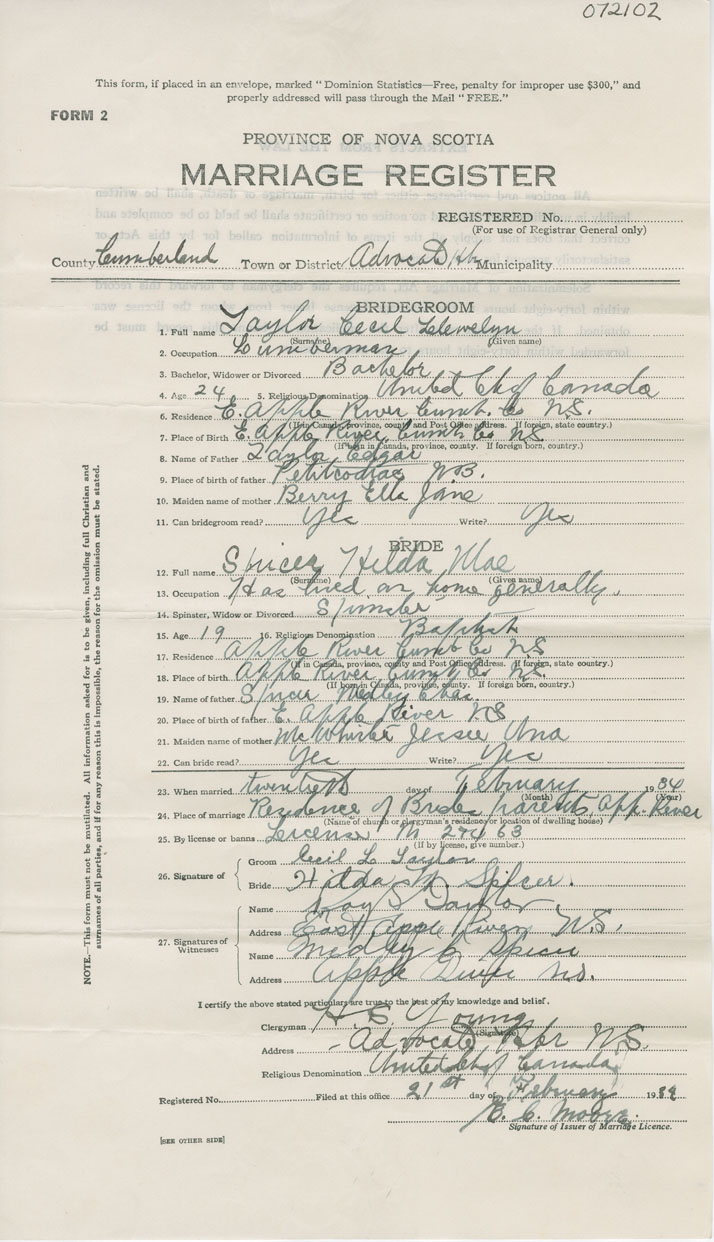 072102
This form, if placed in an envelope, marked "Dominion Statistics—Free, penalty for improper use $300," and
properly addressed will pass through the Mail "FREE."
FORM 2
PROVINCE OF NOVA SCOTIA
MARRIAGE REGISTER
REGISTERED No.
(For use of Registrar General only)
County Cumberland Town or District Advocate Hbr Municipality
BRIDEGROOM
1. Full name Taylor Cecil Llewelyn
(Surname) (Given name)
2. Occupation Lumberman
3. Bachelor, Widower or Divorced Bachelor
4. Age 24 5. Religious Denomination United Ch of Canada
6. Residence E. Apple River Cumb. Co N.S.
(If in Canada, province, county and Post Office address. If foreign, state country.)
7. Place of Birth E. Apple River Cumb Co NS
(If born in Canada, province, county. If foreign born, country.)
8. Name of Father Taylor Edgar
9. Place of birth of father Petitcodiac N.B.
10. Maiden name of mother Berry Ella Jane
11. Can bridegroom read? Yes Write? Yes
BRIDE
12. Full name Spicer Hilda Mae
(Surname) (Given name)
13. Occupation Has lived at home generally.
14. Spinster, Widow or Divorced Spinster
15. Age 19 16. Religious Denomination Baptist
17. Residence Apple River Cumb Co NS
(If in Canada, province, county and Post Office address. If foreign, state country.)
18. Place of birth Apple River, Cumb Co N.S.
(If born in Canada, province, county. If foreign born, country.)
19. Name of father Spicer Medley Chas.
20. Place of birth of father E. Apple River NS
21. Maiden name of mother McWhirter Jessie Una
22. Can bride read? Yes Write? Yes
23. When married twentieth day of February 1934
(Month) (Year)
24. Place of marriage Residence of Brides parents, App. River
(Name of church or clergyman's residence or location of dwelling house)
25. By license or banns License M 27463
(If by license, give number.)
26. Signature of
Groom Cecil L Taylor
Bride Hilda M Spicer.
27. Signatures of Witnesses
Name Ray S Taylor
Address East Apple River N.S.
Name Medley C Spicer
Address Apple River N.S.
I certify the above stated particulars are true to the best of my knowledge and belief.
Clergyman H. S. Young
(Signature)
Address Advocate Hbr N.S.
Religious Denomination United Ch of Canada
Registered No. Filed at this office 21st day of February 1934
E. C. Moore
Signature of Issuer of Marriage Licence.
[SEE OTHER SIDE]
NOTE.—This form must not be mutilated. All information asked for is to be given, including full Christian and
surnames of all parties, and if for any reason this is impossible, the reason for the omission must be stated.